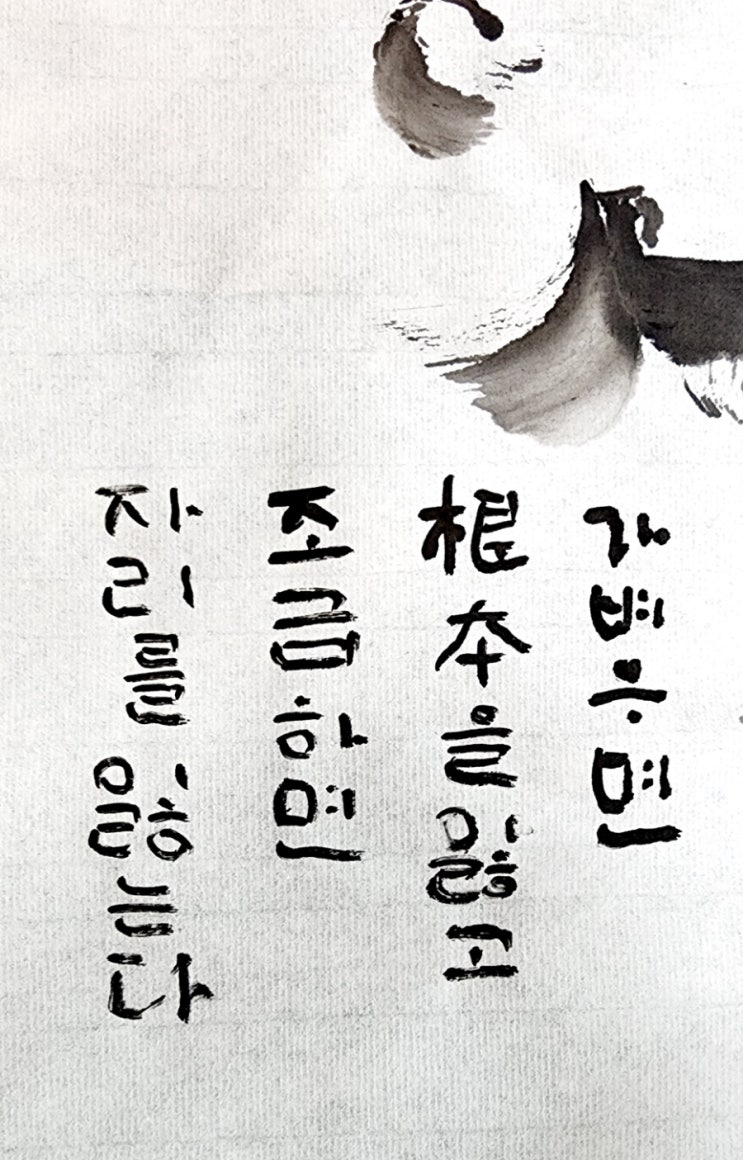 가벼우면
根本을 잃고
조급하면
자리를 잃는다